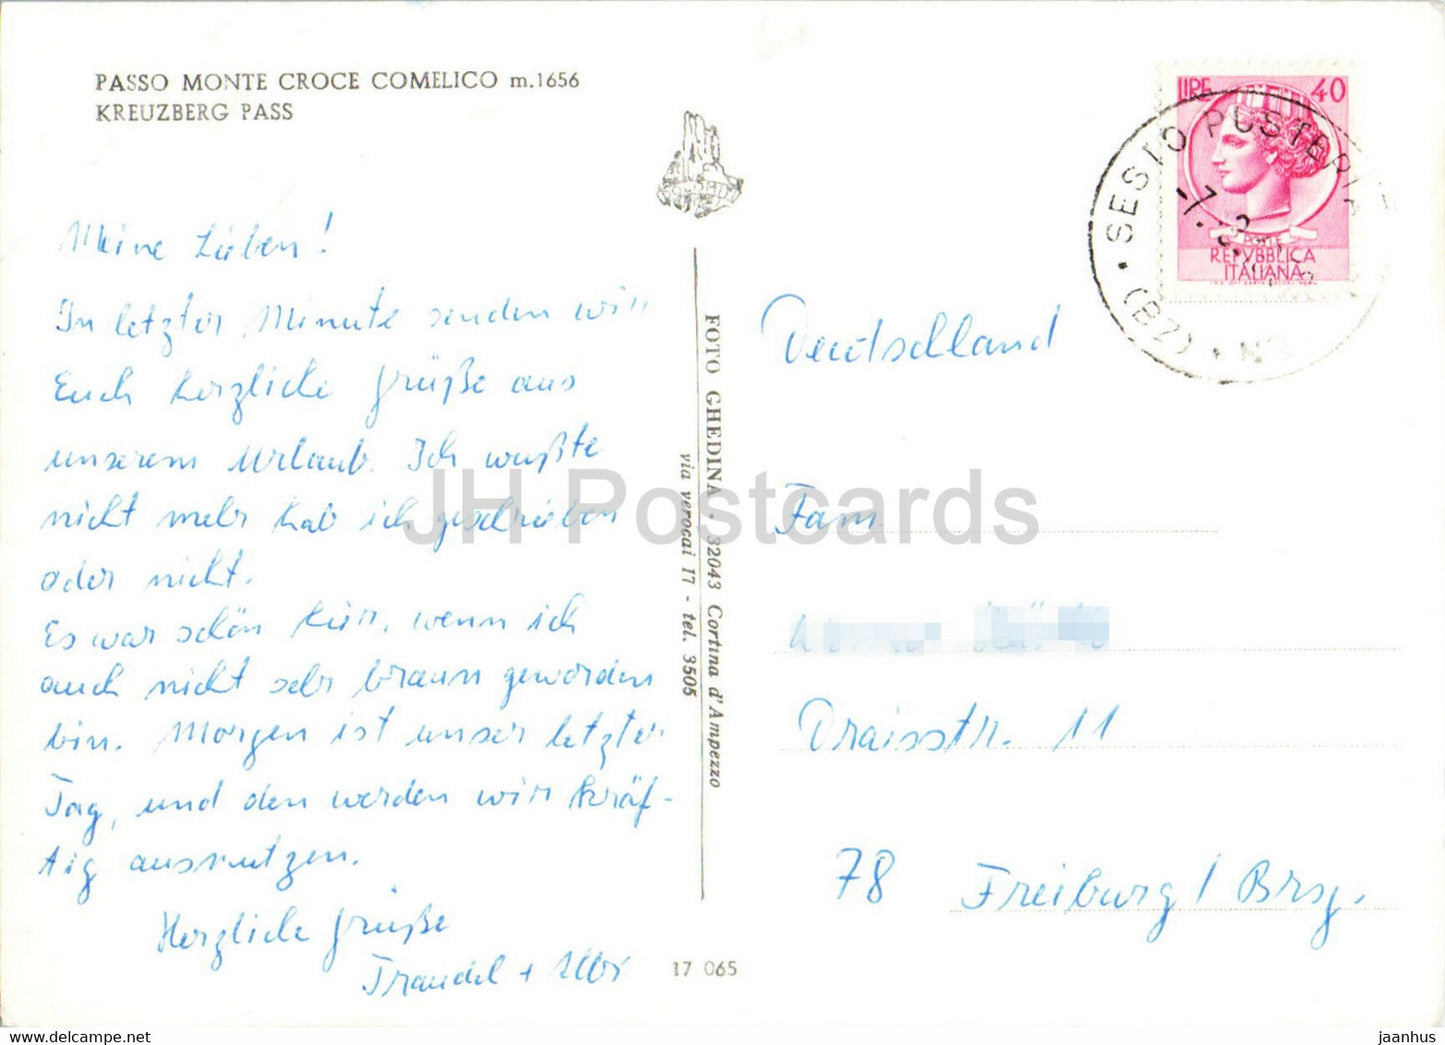 PASSO MONTE CROCE COMELICO m.1656
KREUZBERG PASS
Meine Lieben!
In letzter Minute senden wir
Euch herzliche Grüße aus
unserem Urlaub. Ich wußte
nicht mehr hab ich geschrieben
oder nicht.
Es war schön hier, wenn ich
auch nicht sehr braun geworden
bin. Morgen ist unser letzter
Tag, und den werden wir kräf-
tig ausnutzen.
Herzliche Grüße
Traudel +
FOTO GHEDINA - 32043 Cortina d'Ampezzo
via verocai 17 - tel. 3505
17 065
LIRE 40
POSTE
REPVBBLICA
ITALIANA
SESTO PUSTERIA
(BZ)
Deutschland
Fam.
Draisstr. 11
78 Freiburg / Brsg.
JH Postcards
www.delcampe.net
jaanhus